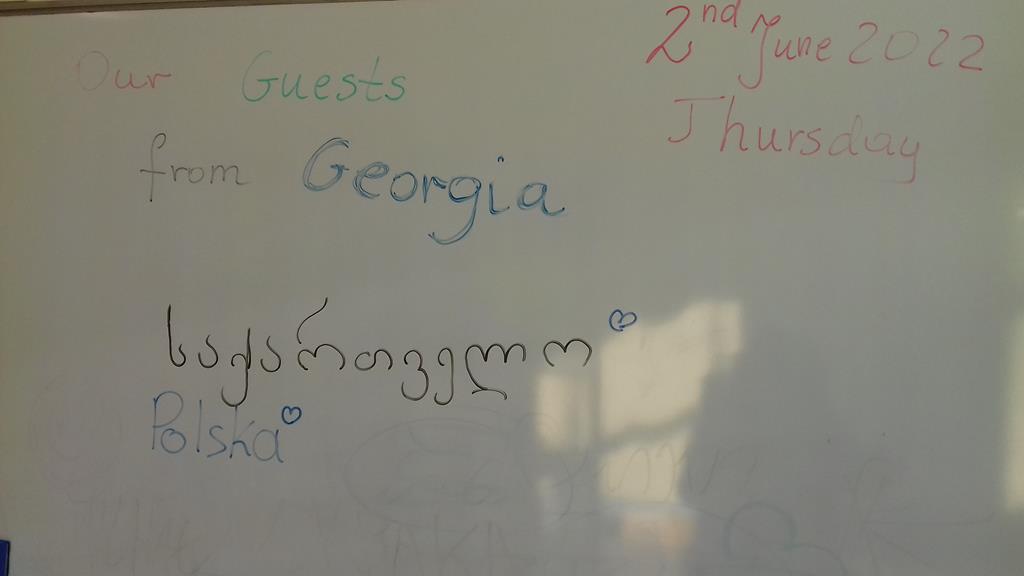 Our Guests
from Georgia
2nd June 2022
Thursday
საქართველო
Polska